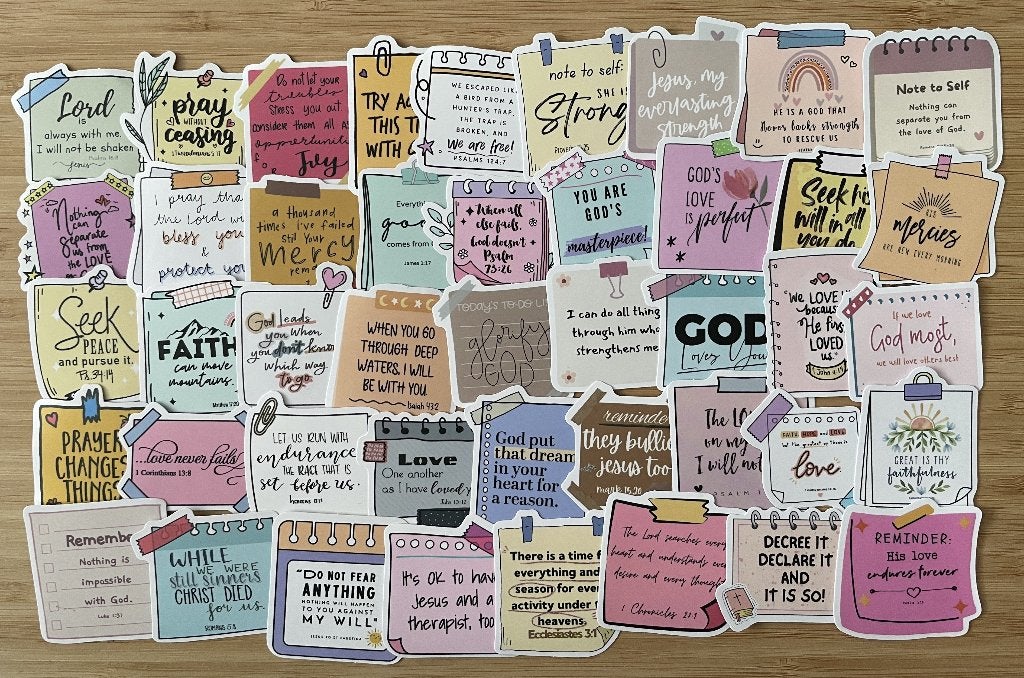 Lord
is
always with me.
I will not be shaken
Psalms 16:8
Jesus
pray
WITHOUT
ceasing
1 Thessalonians 5:17
Do not let your
troubles
stress you out.
consider them all as
opportunity
Joy
TRY
THIS
WITH
WE ESCAPED LIKE
A BIRD FROM A
HUNTER'S TRAP.
THE TRAP IS
BROKEN, AND
We are free!
PSALMS 124:7
note to self:
SHE IS
Strong
Jesus, my
everlasting
strength
HE IS A GOD THAT
Never lacks strength
TO RESCUE US
Note to Self
Nothing can
separate you from
the love of God.
Nothing
can
Separate
us from
the LOVE
I pray tha
the Lord wi
bless you
&
protect you
a thousand
times I've failed
still Your
Mercy
rem
Everyth
goo
comes from
James 1:17
When all
else fails,
God doesn't
Psalm
73:26
YOU ARE
GOD'S
masterpiece!
GOD'S
LOVE
is perfect
Seek hi
will in all
you do
HIS
Mercies
ARE NEW EVERY MORNING
Seek
PEACE
and pursue it.
Ps. 34:14
FAITH
can move
mountains.
Matthew 17:20
God leads
you when
you don't know
which way
to go.
WHEN YOU GO
THROUGH DEEP
WATERS, I WILL
BE WITH YOU.
Isaiah 43:2
TODAY'S TO-DO LI
glorify
GOD
I can do all thing
through him who
strengthens me
GOD
Loves You
"WE LOVE
because
He first
LOVED
us."
1 John 4:19
If we love
God most,
we will love others best
PRAYER
CHANGES
THINGS
...love never fails!
1 Corinthians 13:8
LET US RUN WITH
endurance
THE RACE THAT IS
set before us.
HEBREWS 12:1
Love
One another
as I have loved y
John 13:12
God put
that dream
in your
heart for
a reason.
reminder
they bullie
Jesus too
mark 15:20
The LO
on my
I will not
PSALM 1
FAITH HOPE and LOVE
but the greatest of these is
love
GREAT IS THY
faithfulness
Rememb
Nothing is
impossible
with God.
Luke 1:37
WHILE
WE WERE
still sinners
CHRIST DIED
for us.
ROMANS 5:8
"DO NOT FEAR
ANYTHING
NOTHING WILL HAPPEN
TO YOU AGAINST
MY WILL"
It's OK to have
Jesus and a
therapist, too
There is a time f
everything and
season for ever
activity under t
heavens.
Ecclesiastes 3:1
The Lord searches every
heart and understands eve
desire and every thought
1 Chronicles 28:9
DECREE IT
DECLARE IT
AND
IT IS SO!
REMINDER:
His love
endures forever